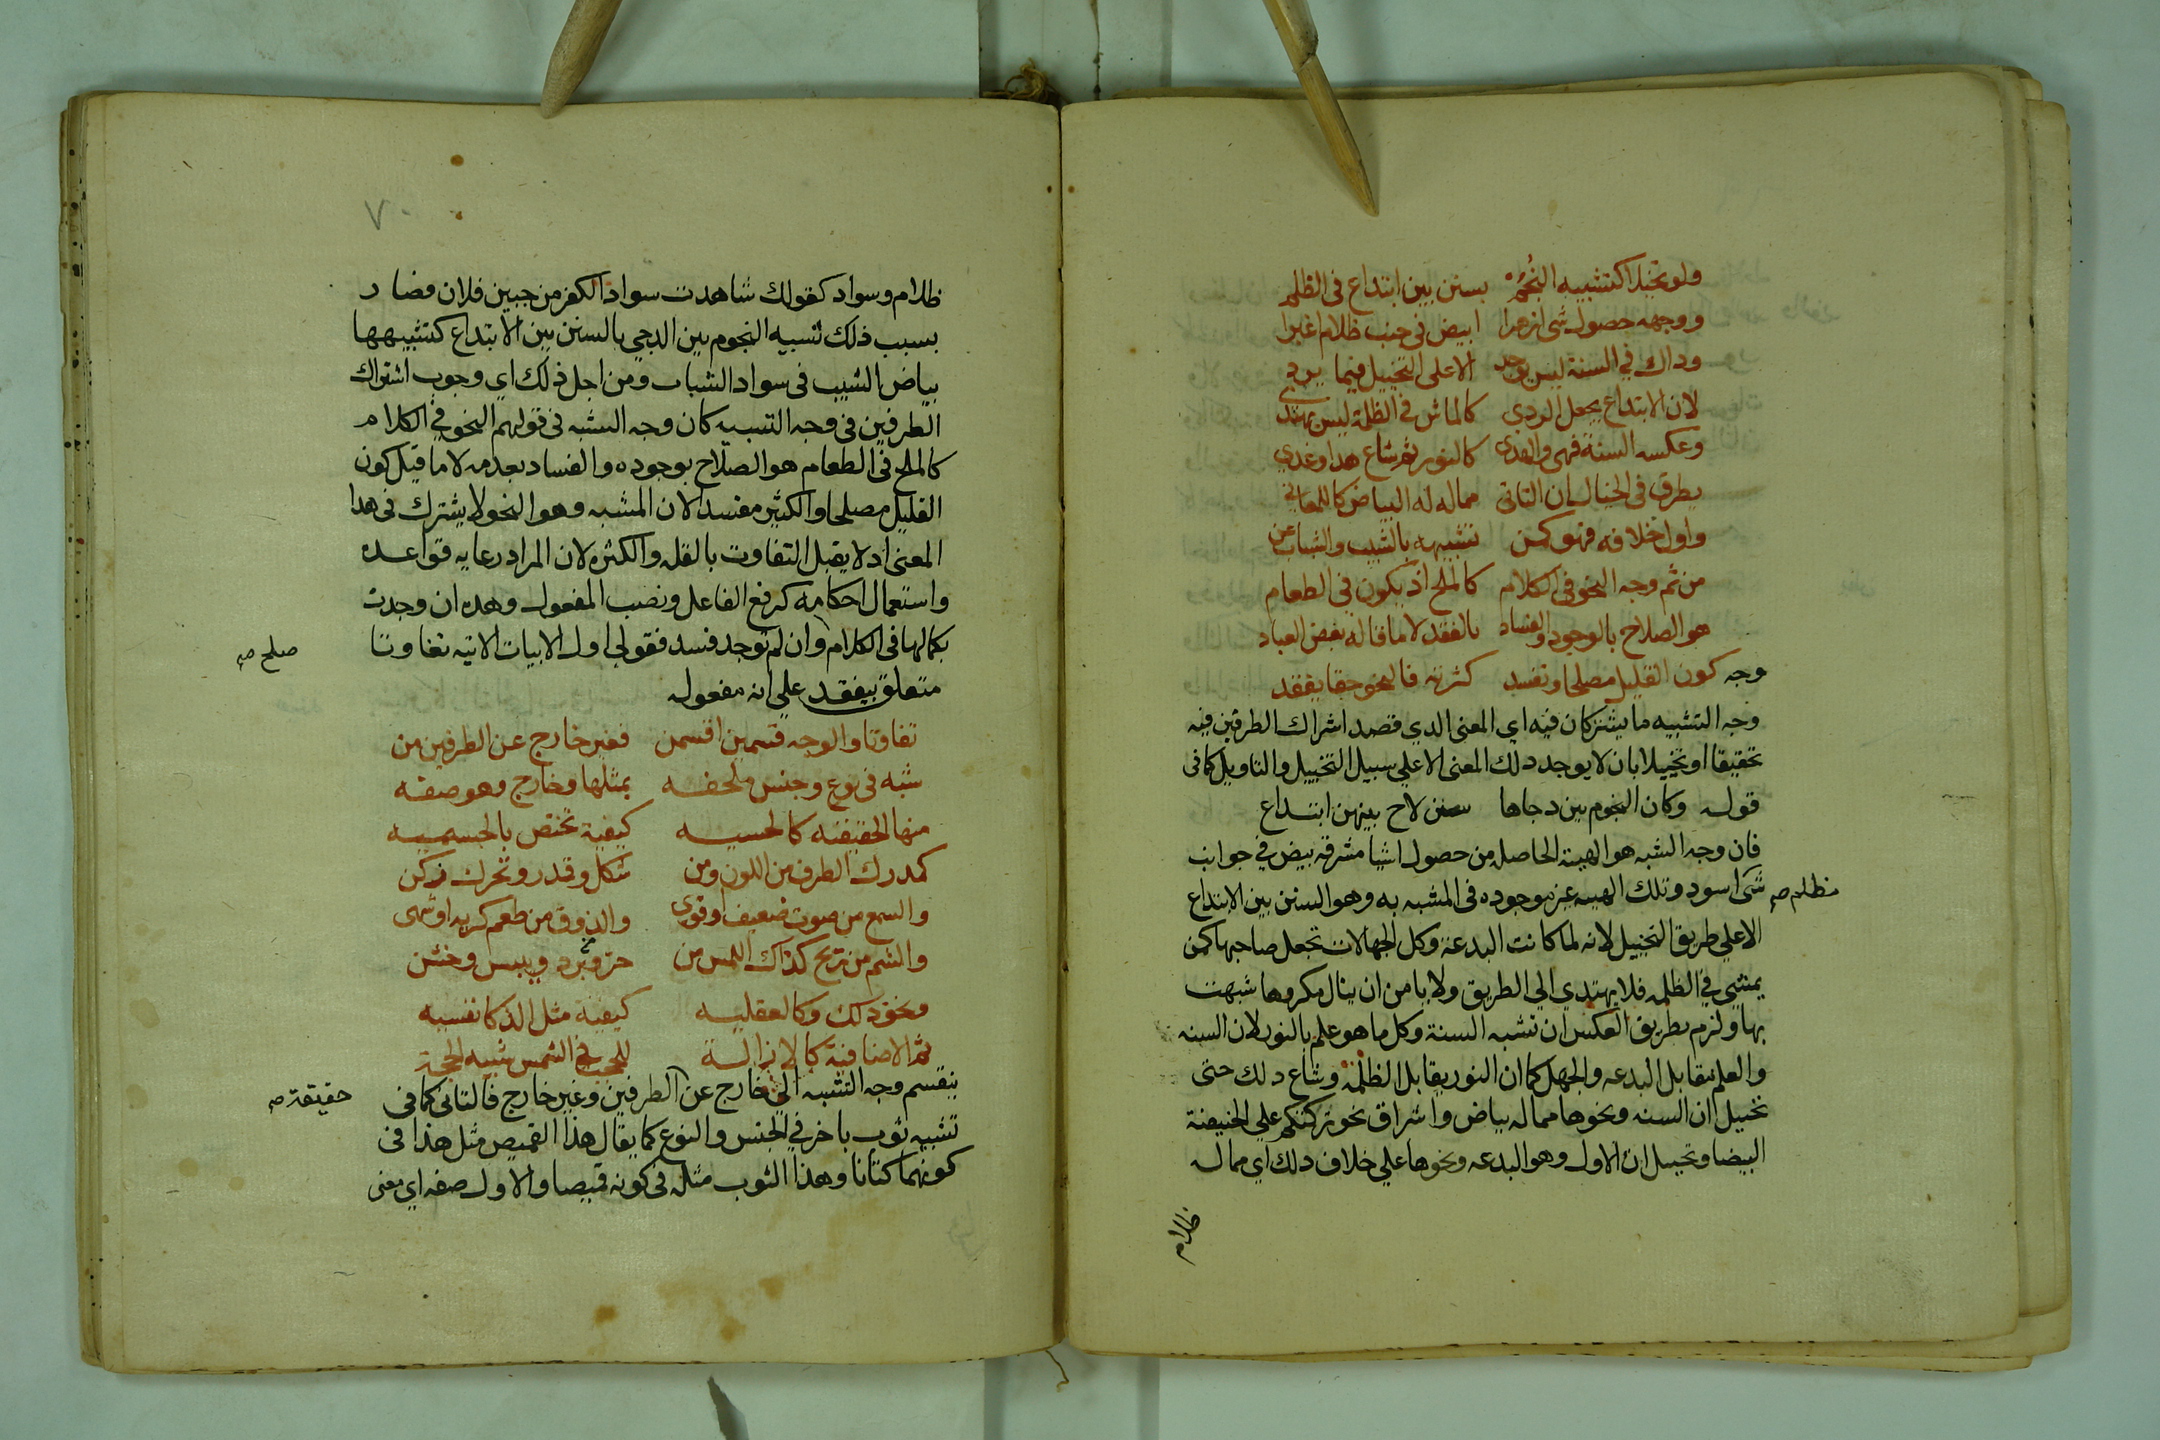 ولو تخيلا كتشبيه النجم بسنن بين ابتداع في الظلم
ووجهه حصول شي ازهرا ابيض في جنب ظلام اغبرا
وداك في السنة ليس يوجد الا على التخييل فيما يرد
لان الابتداع يجعل الردي كالماش في الظلمة ليس يهتدي
وعكسه السنة فهي والهدى كالنور ثم شاع هدا وغدي
يطرق في الخيال ان الثاني مما له البياض كاللمعاني
واول خلافه فهو كمن تشبيهه بالشيب والشباب عن
من ثم وجه النحو في الكلام كالملح اذ يكون في الطعام
هو الصلاح بالوجود والفساد بالفقد لا ما قاله بعض العباد
وجه كون القليل مصلحا وتفسد كثرته فالنحو حقا يفقد
وجه التشبيه ما يشتركان فيه اي المعنى الدي قصد اشراك الطرفين فيه
تحقيقا او تخييلا بان لا يوجد دلك المعنى الا علي سبيل التخييل والتاويل كما في
قوله وكان النجوم بين دجاها سنن لاح بينهن ابتداع
فان وجه الشبه هو الهيئة الحاصله من حصول اشيا مشرقة بيض في جوانب
شى اسود وتلك الهيئه غير موجوده في المشبه به وهو السنن بين الابتداع
مظلم صح
الا علي طريق التخييل لانه لما كانت البدعة وكل الجهالات تجعل صاحبها كمن
يمشي في الظلمه فلا يهتدي الي الطريق ولا يامن ان ينال مكروها شبهت
بها ولزم بطريق العكس ان تشبه السنة وكل ما هو علم بالنور لان السنه
والعلم تقابل البدعه والجهل كما ان النور يقابل الظلمة وشاع دلك حتى
تخييل ان السنه ونحوها مما له بياض واشراق نحو تركتكم علي الحنيفية
البيضا وتخييل ان الاول وهو البدعه ونحوها علي خلاف دلك اي مما له
ظلام
٧
ظلام وسواد كقولك شاهدت سواد الكفر من جبين فلان فصار
بسبب ذلك تشبيه النجوم بين الدجي بالسنن بين الابتداع كتشبيهها
ببياض الشيب في سواد الشباب ومن اجل ذلك اي وجوب اشتراك
الطرفين في وجه التشبيه كان وجه الشبه في قولهم النحو في الكلام
كالملح في الطعام هو الصلاح بوجوده والفساد بعدمه لا ما قيل كون
القليل مصلحا والكثير مفسدا لان المشبه وهو النحو لا يشترك في هدا
المعنى اد لا يقبل التفاوت بالقله والكثره لان المراد رعايه قواعده
واستعمال احكامه كرفع الفاعل ونصب المفعول وهده ان وجدت
بكمالها في الكلام وان لم توجد فسد فقولي اول الابيات الاتيه تفاوتا
صلح صح
متعلق بيفقد علي انه مفعوله
تفاوتا والوجه قسمين اقسمن فغير خارج عن الطرفين من
شبه في نوع وجنس ملحفه بمثلها وخارج وهو صفه
منها الحقيقيه كالحسيه كيفية تختص بالجسميه
كمدرك الطرف من اللون ومن شكل وقدر وتحرك زكن
والسمع من صوت ضعيف او قوى والذوق من طعم كريه او شهى
والشم من ريح كذاك اللمس من حر وبرد ويبس وخشن
ونحو دلك وكالعقليه كيفية مثل الذكا نفسيه
ثم الاضافية كالازالة للحجب في الشمس شبيه الحجة
ينقسم وجه التشبه الي خارج عن الطرفين وغير خارج فالثاني كما في
حقيقة صح
تشبيه ثوب باخر في الجنس والنوع كما يقال هذا القميص مثل هذا في
كونهما كتانا وهذا الثوب مثله في كونه قميصا والاول صفه اي معنى